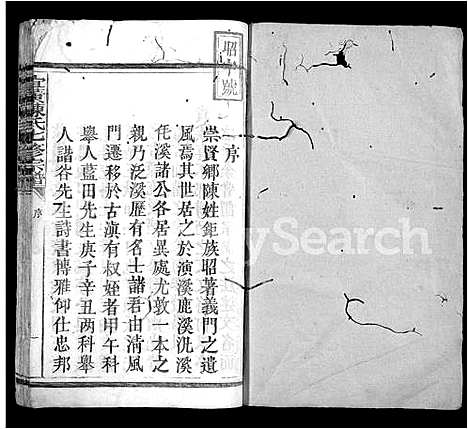 昭字號
序
崇賢鄉陳姓鉅族昭著義門之遺
風焉其世居之於演溪鹿溪氿溪
任溪諸公各居異處尤敦一本之
親乃泛溪歷有名士諸吾由清風
門遷移於古滇有叔姪者甲午科
舉人藍田先生庚子辛丑兩科舉
人諧谷先生詩書博雅仰仕忠邦
陳氏七修宗譜
序
MySearch